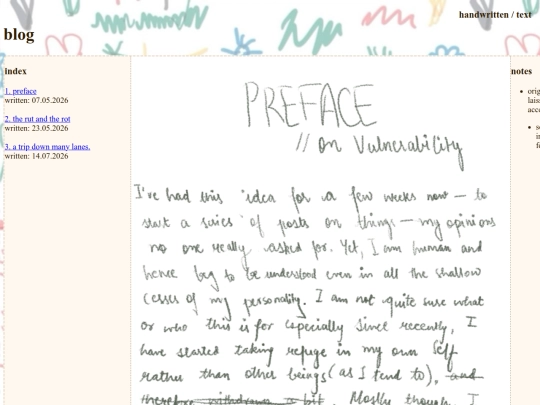 handwritten / text
blog
index
1. preface
written: 07.05.2026
2. the rut and the rot
written: 23.05.2026
3. a trip down many lanes.
written: 14.07.2026
PREFACE
// on Vulnerability
I've had this idea for a few weeks now — to
start a series of posts on things — my opinions
no one really asked for. Yet, I am human and
hence beg to be understood even in all the shallow
of my personality. I am not quite sure what
or who this is for especially since recently, I
have started taking refuge in my own self
rather than other beings (as I tend to), and
therefore withdrawn a bit. Mostly though, I
notes